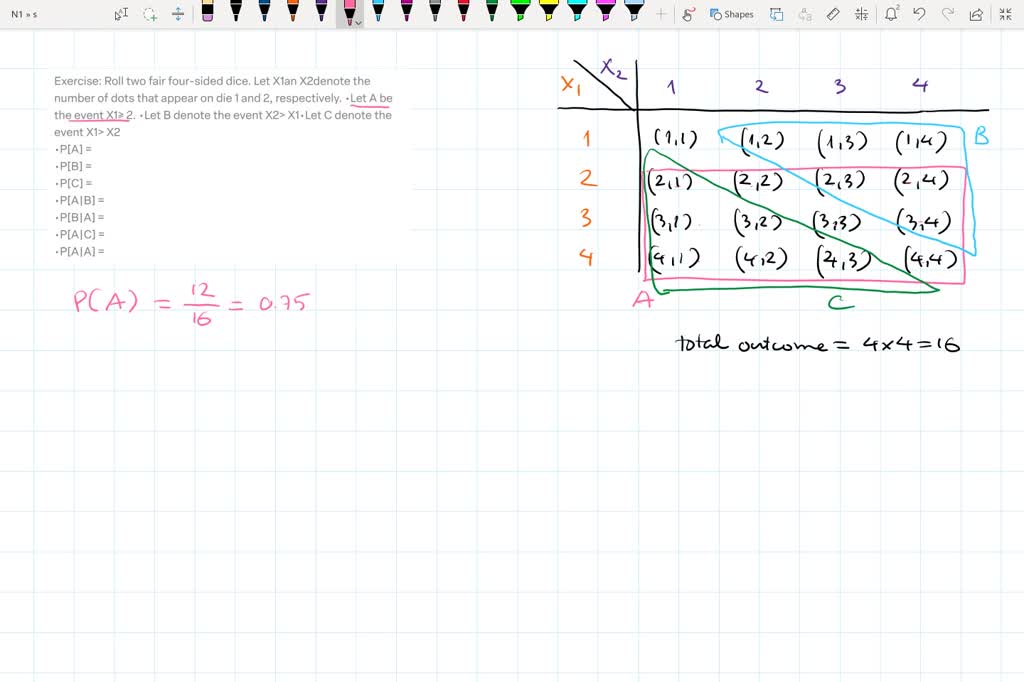 N1 » s
Shapes
Exercise: Roll two fair four-sided dice. Let X1an X2denote the
number of dots that appear on die 1 and 2, respectively. •Let A be
the event X1≥ 2. •Let B denote the event X2> X1•Let C denote the
event X1> X2
•P[A] =
•P[B] =
•P[C] =
•P[A|B] =
•P[B|A] =
•P[A|C] =
•P[A|A] =
P(A) = 12/16 = 0.75
X1 X2 1 2 3 4
1 (1,1) (1,2) (1,3) (1,4) B
2 (2,1) (2,2) (2,3) (2,4)
3 (3,1) (3,2) (3,3) (3,4)
4 (4,1) (4,2) (4,3) (4,4)
A C
total outcome = 4×4=16